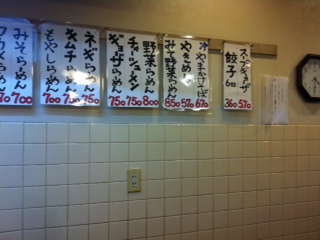 スープギョーザ 570
餃子 6ケ 360
冷やまかけそば 670
やきめし 570
みそ野菜らーめん 850
野菜らーめん 800
チャーシューメン 750
ギョーザらーめん 750
ネギらーめん 750
キムチらーめん 750
もやしらーめん 700
みそらーめん 700